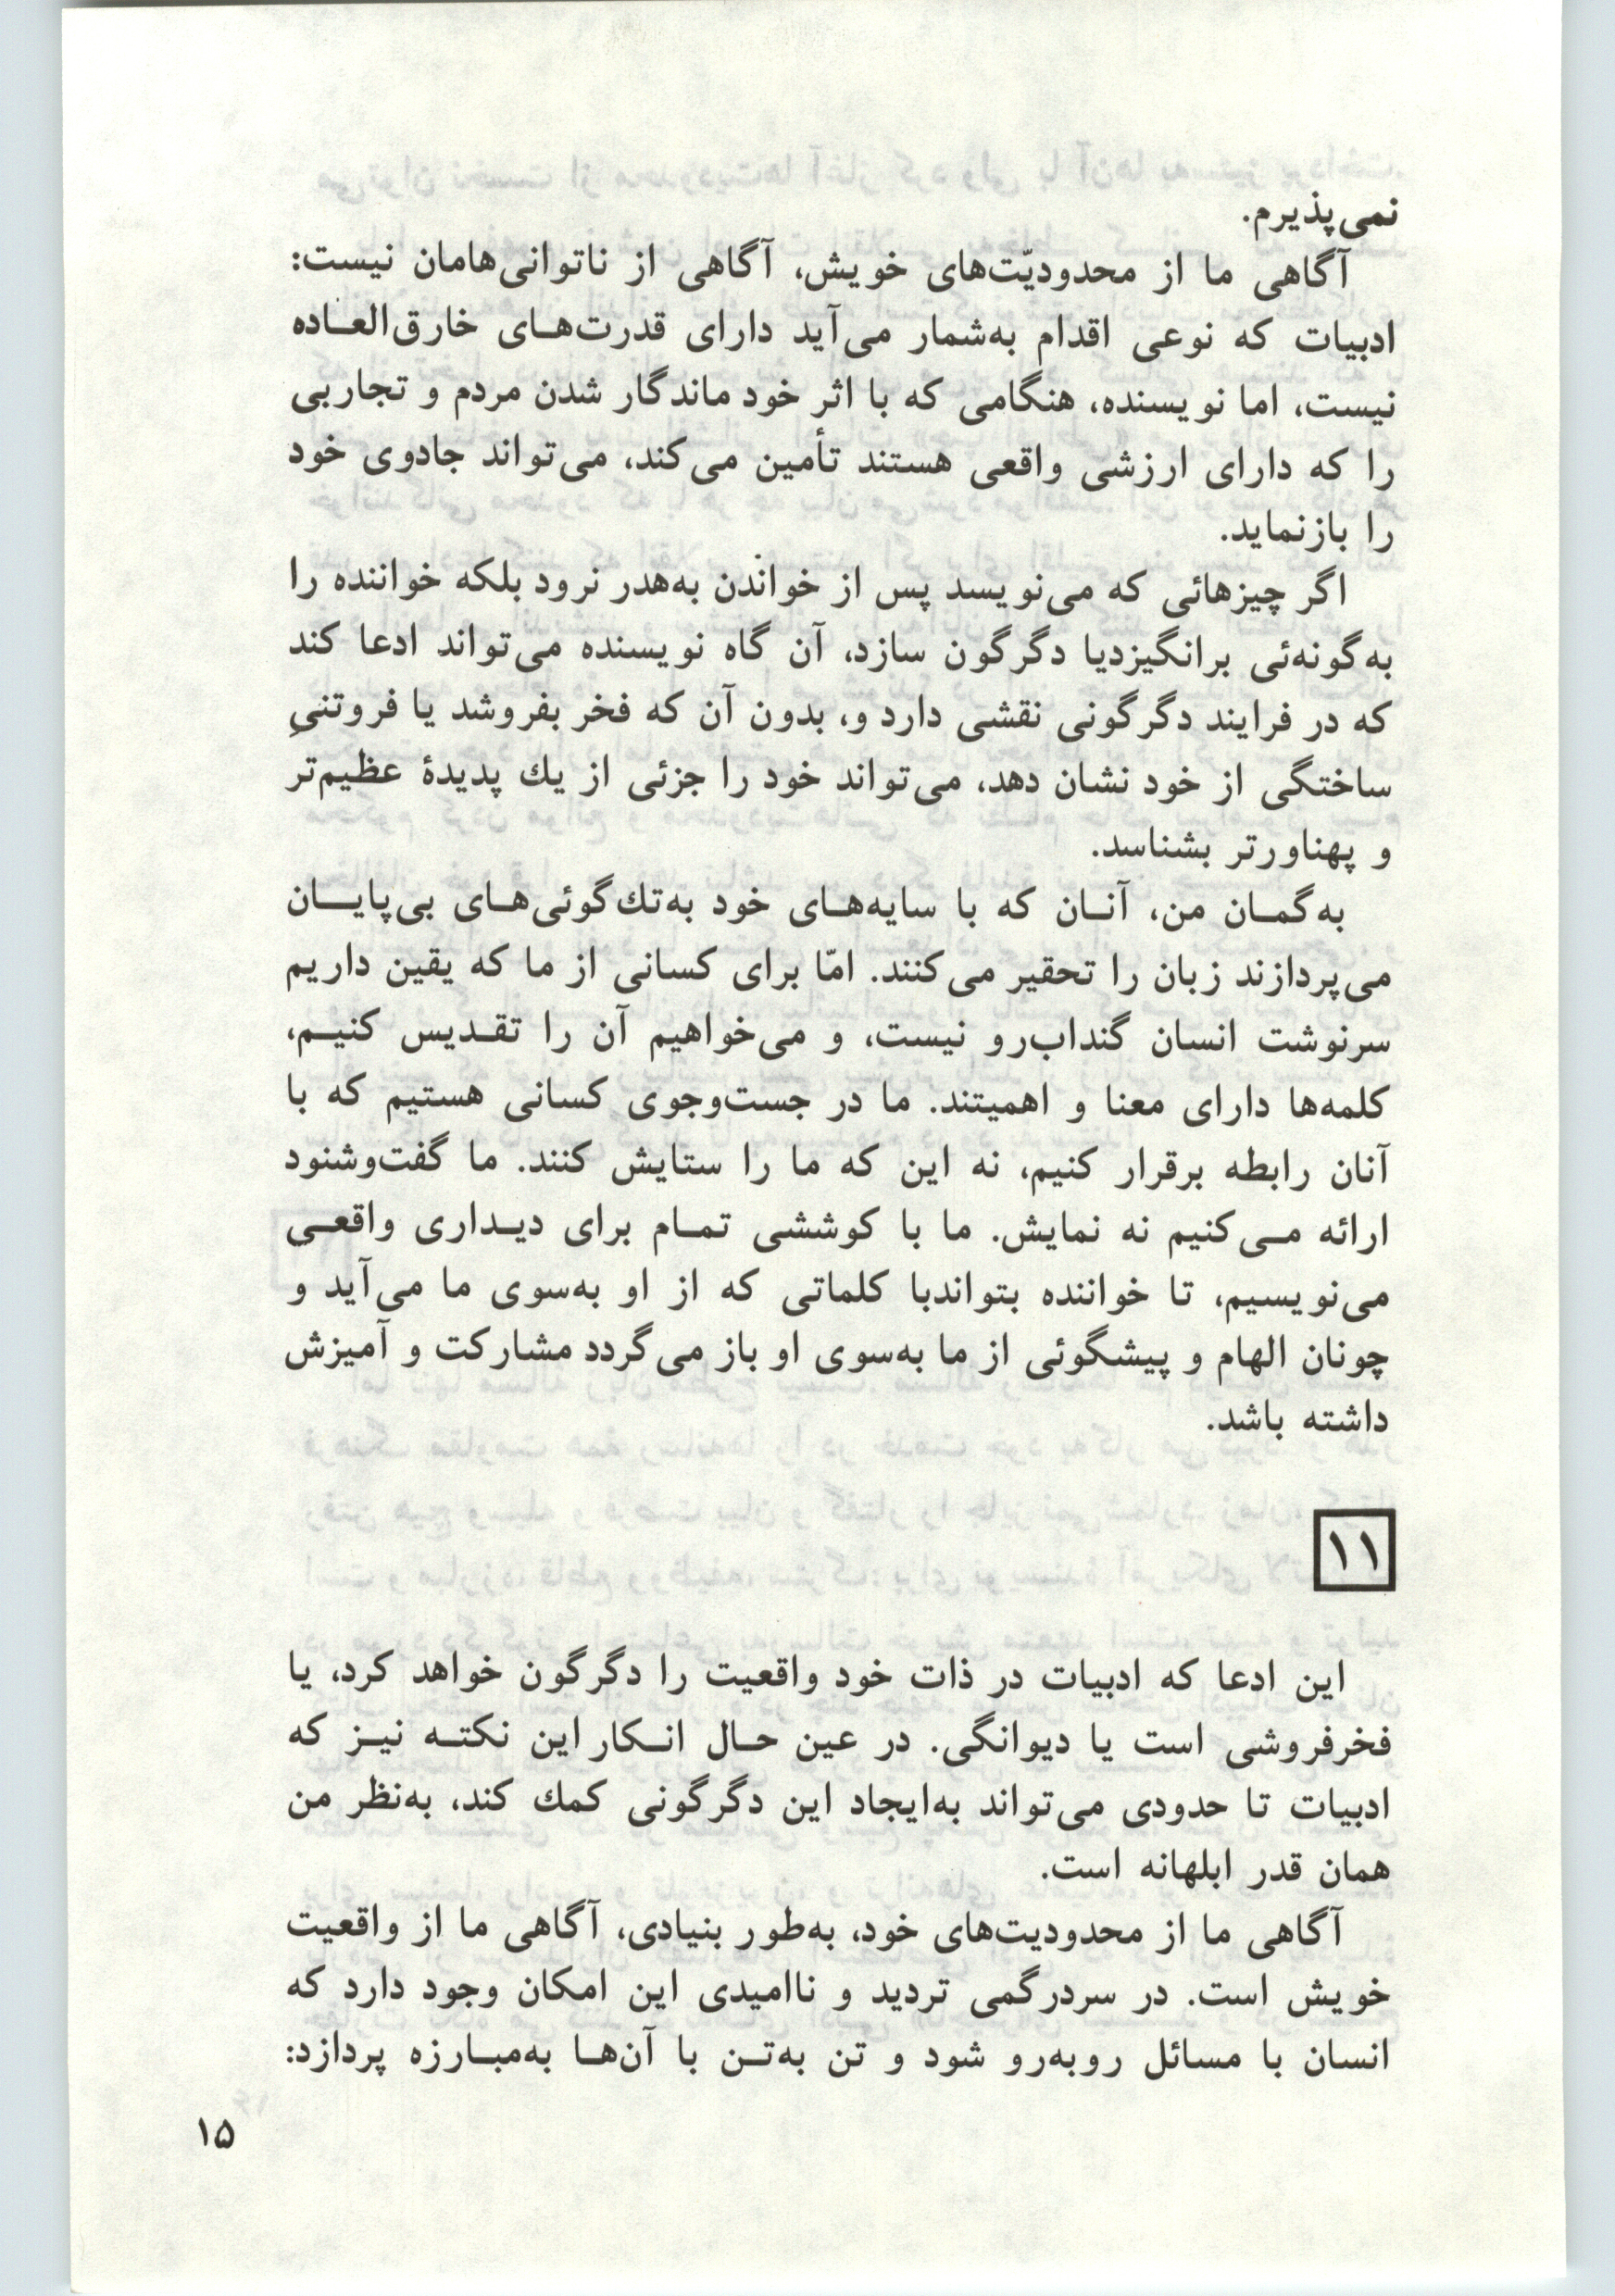 نمی‌پذیرم.
آگاهی ما از محدودیّت‌های خویش، آگاهی از ناتوانی‌هامان نیست:
ادبیات که نوعی اقدام به‌شمار می‌آید دارای قدرت‌هـای خارق‌العـاده
نیست، اما نویسنده، هنگامی که با اثر خود ماندگار شدن مردم و تجاربی
را که دارای ارزشی واقعی هستند تأمین می‌کند، می‌تواند جادوی خود
را بازنماید.
اگر چیزهائی که می‌نویسد پس از خواندن به‌هدر نرود بلکه خواننده را
به‌گونه‌ئی برانگیزدیا دگرگون سازد، آن گاه نویسنده می‌تواند ادعا کند
که در فرایند دگرگونی نقشی دارد و، بدون آن که فخر بفروشد یا فروتنیِ
ساختگی از خود نشان دهد، می‌تواند خود را جزئی از یك پدیدهٔ عظیم‌تر
و پهناورتر بشناسد.
به‌گمـان من، آنـان که با سایه‌هـای خود به‌تك‌گوئی‌هـای بی‌پایـان
می‌پردازند زبان را تحقیر می‌کنند. امّا برای کسانی از ما که یقین داریم
سرنوشت انسان گنداب‌رو نیست، و می‌خواهیم آن را تقـدیس کنیـم،
کلمه‌ها دارای معنا و اهمیتند. ما در جست‌وجوی کسانی هستیم که با
آنان رابطه برقرار کنیم، نه این که ما را ستایش کنند. ما گفت‌وشنود
ارائه مـی‌کنیم نه نمایش. ما با کوششی تمـام برای دیـداری واقعـی
می‌نویسیم، تا خواننده بتواندبا کلماتی که از او به‌سوی ما می‌آید و
چونان الهام و پیشگوئی از ما به‌سوی او باز می‌گردد مشارکت و آمیزش
داشته باشد.
۱۱
این ادعا که ادبیات در ذات خود واقعیت را دگرگون خواهد کرد، یا
فخرفروشی است یا دیوانگی. در عین حـال انـکار این نکتـه نیـز که
ادبیات تا حدودی می‌تواند به‌ایجاد این دگرگونی کمك کند، به‌نظر من
همان قدر ابلهانه است.
آگاهی ما از محدودیت‌های خود، به‌طور بنیادی، آگاهی ما از واقعیت
خویش است. در سردرگمی تردید و ناامیدی این امکان وجود دارد که
انسان با مسائل روبه‌رو شود و تن به‌تـن با آن‌هـا به‌مبـارزه پردازد:
۱۵